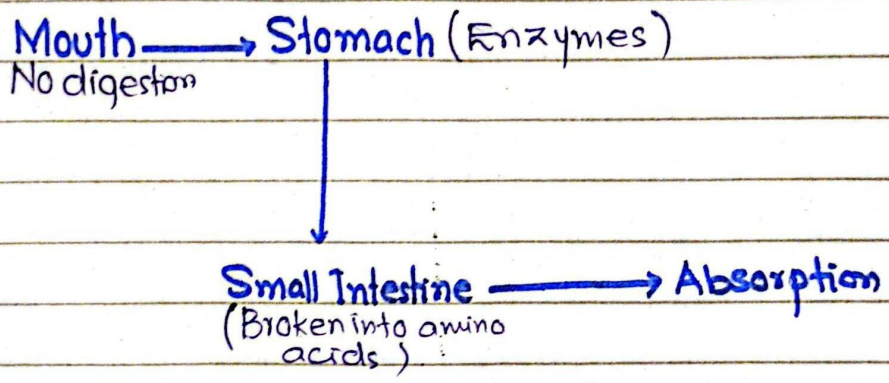 Mouth → Stomach (Enzymes)
No digeston
Small Intestine → Absorption
(Broken into amino
acids)